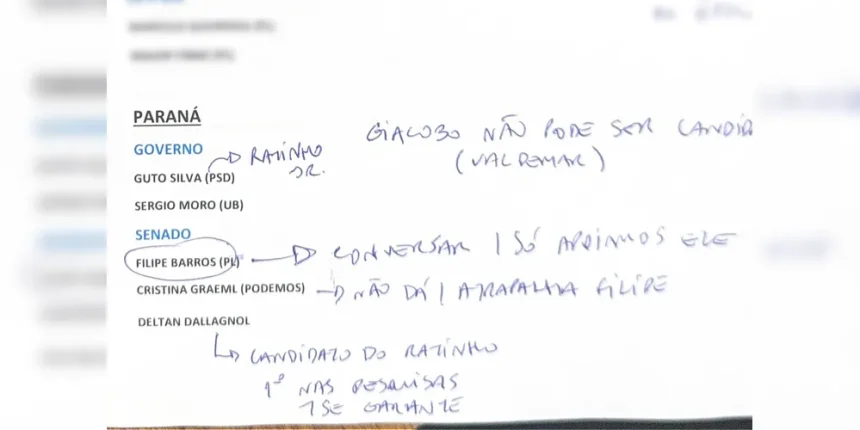 PARANÁ
GIACOBO NÃO PODE SER CANDIDA
(VALDEMAR)
GOVERNO
→ RATINHO JR.
GUTO SILVA (PSD)
SERGIO MORO (UB)
SENADO
FILIPE BARROS (PL) → CONVERSAR / SÓ APOIAMOS ELE
CRISTINA GRAEML (PODEMOS) → NÃO DÁ / ATRAPALHA FILIPE
DELTAN DALLAGNOL
↳ CANDIDATO DO RATINHO
1º NAS PESQUISAS
/ SE GARANTE